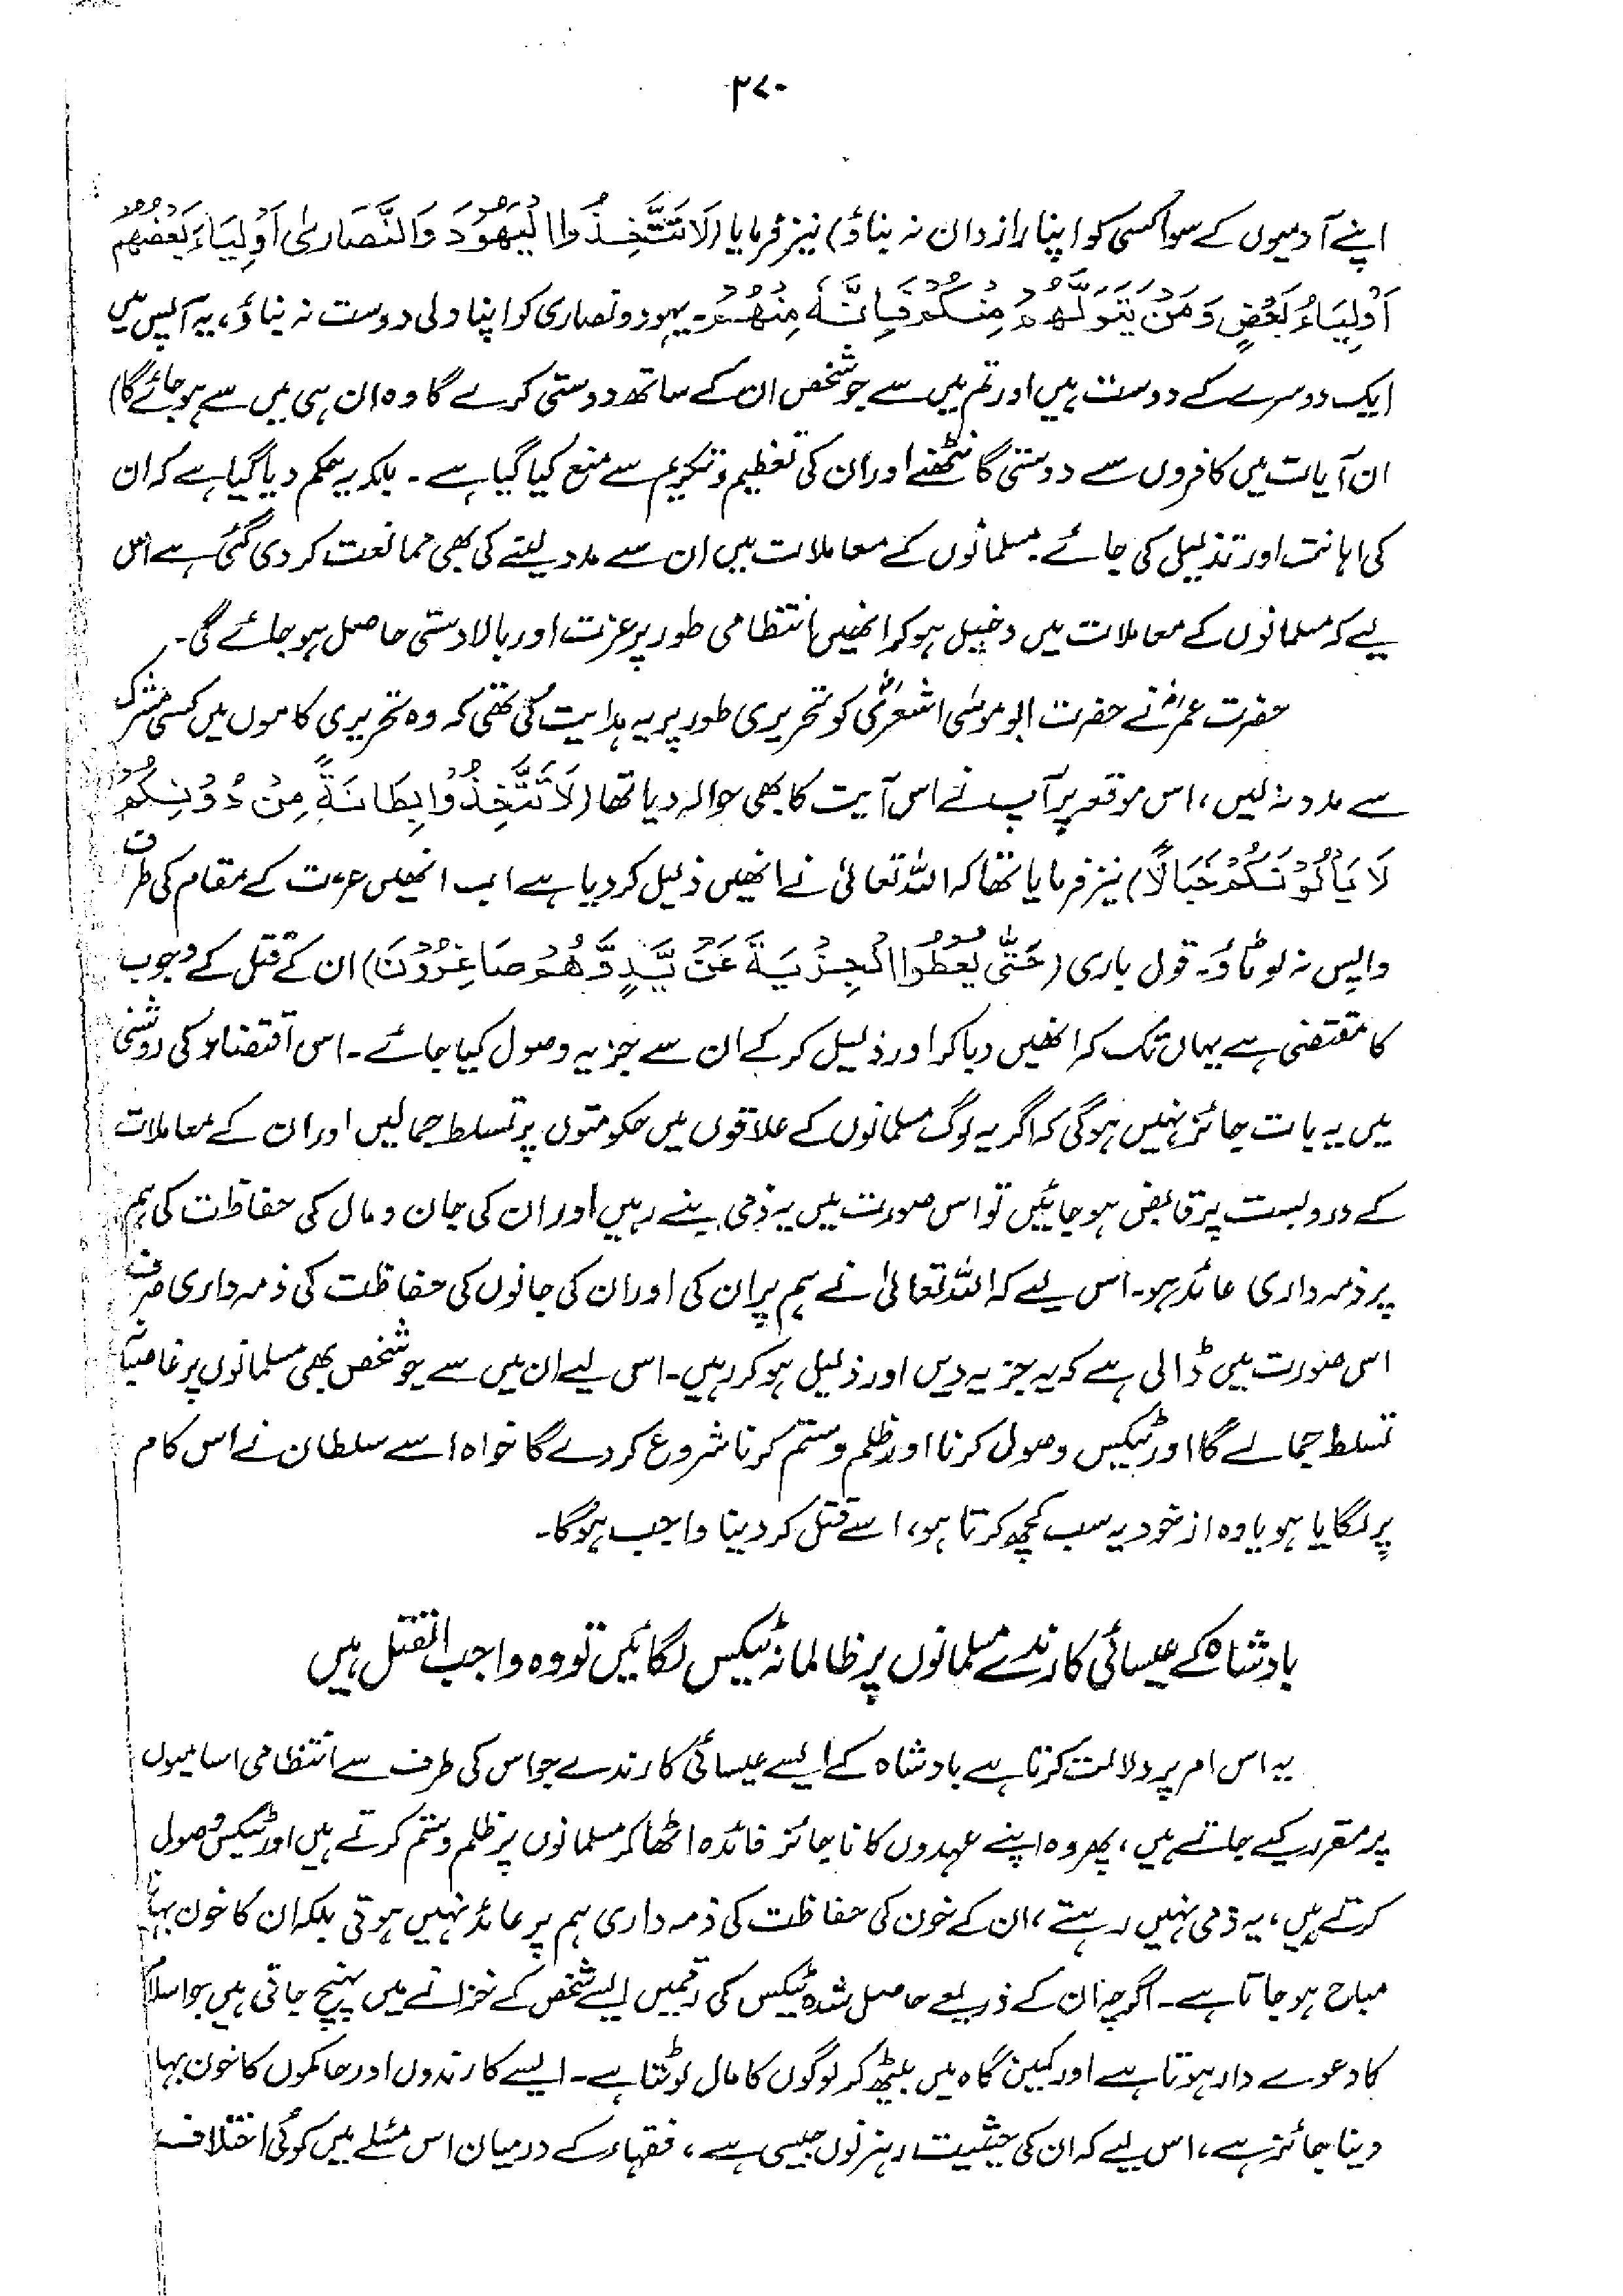 ۳۷۰
اپنے آدمیوں کے سوا کسی کو اپنا رازدان نہ بناؤ) نیز فرمایا (لَا تَتَّخِذُوا الْيَهُودَ وَالنَّصَارىٰ أَوْلِيَاءَ بَعْضُهُمْ
أَوْلِيَاءُ بَعْضٍ وَمَنْ يَتَوَلَّهُمْ مِنْكُمْ فَإِنَّهُ مِنْهُمْ۔ یہود و نصاری کو اپنا ولی دوست نہ بناؤ، یہ آپس میں
ایک دوسرے کے دوست ہیں اور تم میں سے جو شخص ان کے ساتھ دوستی کرے گا وہ ان ہی میں سے ہو جائے گا)
ان آیات میں کافروں سے دوستی گانٹھنے اور ان کی تعظیم و تکریم سے منع کیا گیا ہے۔ بلکہ یہ حکم دیا گیا ہے کہ ان
کی اہانت اور تذلیل کی جائے۔ مسلمانوں کے معاملات میں ان سے مدد لینے کی بھی ممانعت کر دی گئی ہے اس
لیے کہ مسلمانوں کے معاملات میں دخیل ہو کر انھیں انتظامی طور پر عزت اور بالادستی حاصل ہو جائے گی۔
حضرت عمرؓ نے حضرت ابو موسیٰ اشعریؓ کو تحریری طور پر یہ ہدایت کی تھی کہ وہ تحریری کاموں میں کسی مشرک
سے مدد نہ لیں، اس موقعہ پر آپ نے اس آیت کا بھی حوالہ دیا تھا (لَا تَتَّخِذُوا بِطَانَةً مِنْ دُونِكُمْ
لَا يَأْلُونَكُمْ خَبَالًا) نیز فرمایا تھا کہ اللہ تعالیٰ نے انھیں ذلیل کر دیا ہے اب انھیں عزت کے مقام کی طرف
واپس نہ لوٹاؤ۔ قول باری (حَتّٰى يُعْطُوا الْجِزْيَةَ عَنْ يَّدٍ وَّهُمْ صَاغِرُوْنَ) ان کے قتل کے وجوب
کا مقتضی ہے یہاں تک کہ انھیں دبا کر اور ذلیل کر کے ان سے جزیہ وصول کیا جائے۔ اس اقتضاء کی روشنی
میں یہ بات جائز نہیں ہوگی کہ اگر یہ لوگ مسلمانوں کے علاقوں میں حکومتوں پر تسلط جما لیں اور ان کے معاملات
کے در و بست پر قابض ہو جائیں تو اس صورت میں یہ ذمی بنے رہیں اور ان کی جان و مال کی حفاظت کی ہم
پر ذمہ داری عائد ہو۔ اس لیے کہ اللہ تعالیٰ نے ہم پر ان کی اور ان کی جانوں کی حفاظت کی ذمہ داری صرف
اس صورت میں ڈالی ہے کہ یہ جزیہ دیں اور ذلیل ہو کر رہیں۔ اسی لیے ان میں سے جو شخص بھی مسلمانوں پر غاصبانہ
تسلط جمالے گا اور ٹیکس وصول کرنا اور ظلم و ستم کرنا شروع کر دے گا خواہ اسے سلطان نے اس کام
پر لگایا ہو یا وہ از خود یہ سب کچھ کرتا ہو، اسے قتل کر دینا واجب ہوگا۔
بادشاہ کے عیسائی کارندے مسلمانوں پر ظالمانہ ٹیکس لگائیں تو وہ واجب القتل ہیں
یہ اس امر پر دلالت کرتا ہے بادشاہ کے ایسے عیسائی کارندے جو اس کی طرف سے انتظامی اسامیوں
پر مقرر کیے جاتے ہیں، پھر وہ اپنے عہدوں کا ناجائز فائدہ اٹھا کر مسلمانوں پر ظلم و ستم کرتے ہیں اور ٹیکس وصول
کرتے ہیں، یہ ذمی نہیں رہتے، ان کے خون کی حفاظت کی ذمہ داری ہم پر عائد نہیں ہوتی بلکہ ان کا خون بہانا
مباح ہو جاتا ہے۔ اگرچہ ان کے ذریعے حاصل شدہ ٹیکس کی رقمیں ایسے شخص کے خزانے میں پہنچ جاتی ہیں جو اسلام
کا دعوے دار ہوتا ہے اور کمین گاہ میں بیٹھ کر لوگوں کا مال لوٹتا ہے۔ ایسے کارندوں اور حاکموں کا خون بہا
دینا جائز ہے، اس لیے کہ ان کی حیثیت رہزنوں جیسی ہے، فقہاء کے درمیان اس مسئلے میں کوئی اختلاف